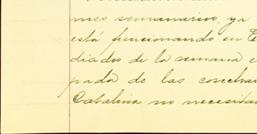 mes semanarios, ya
está funcionando en E
diados de la semana e
pada de las
Catalina no necesitar